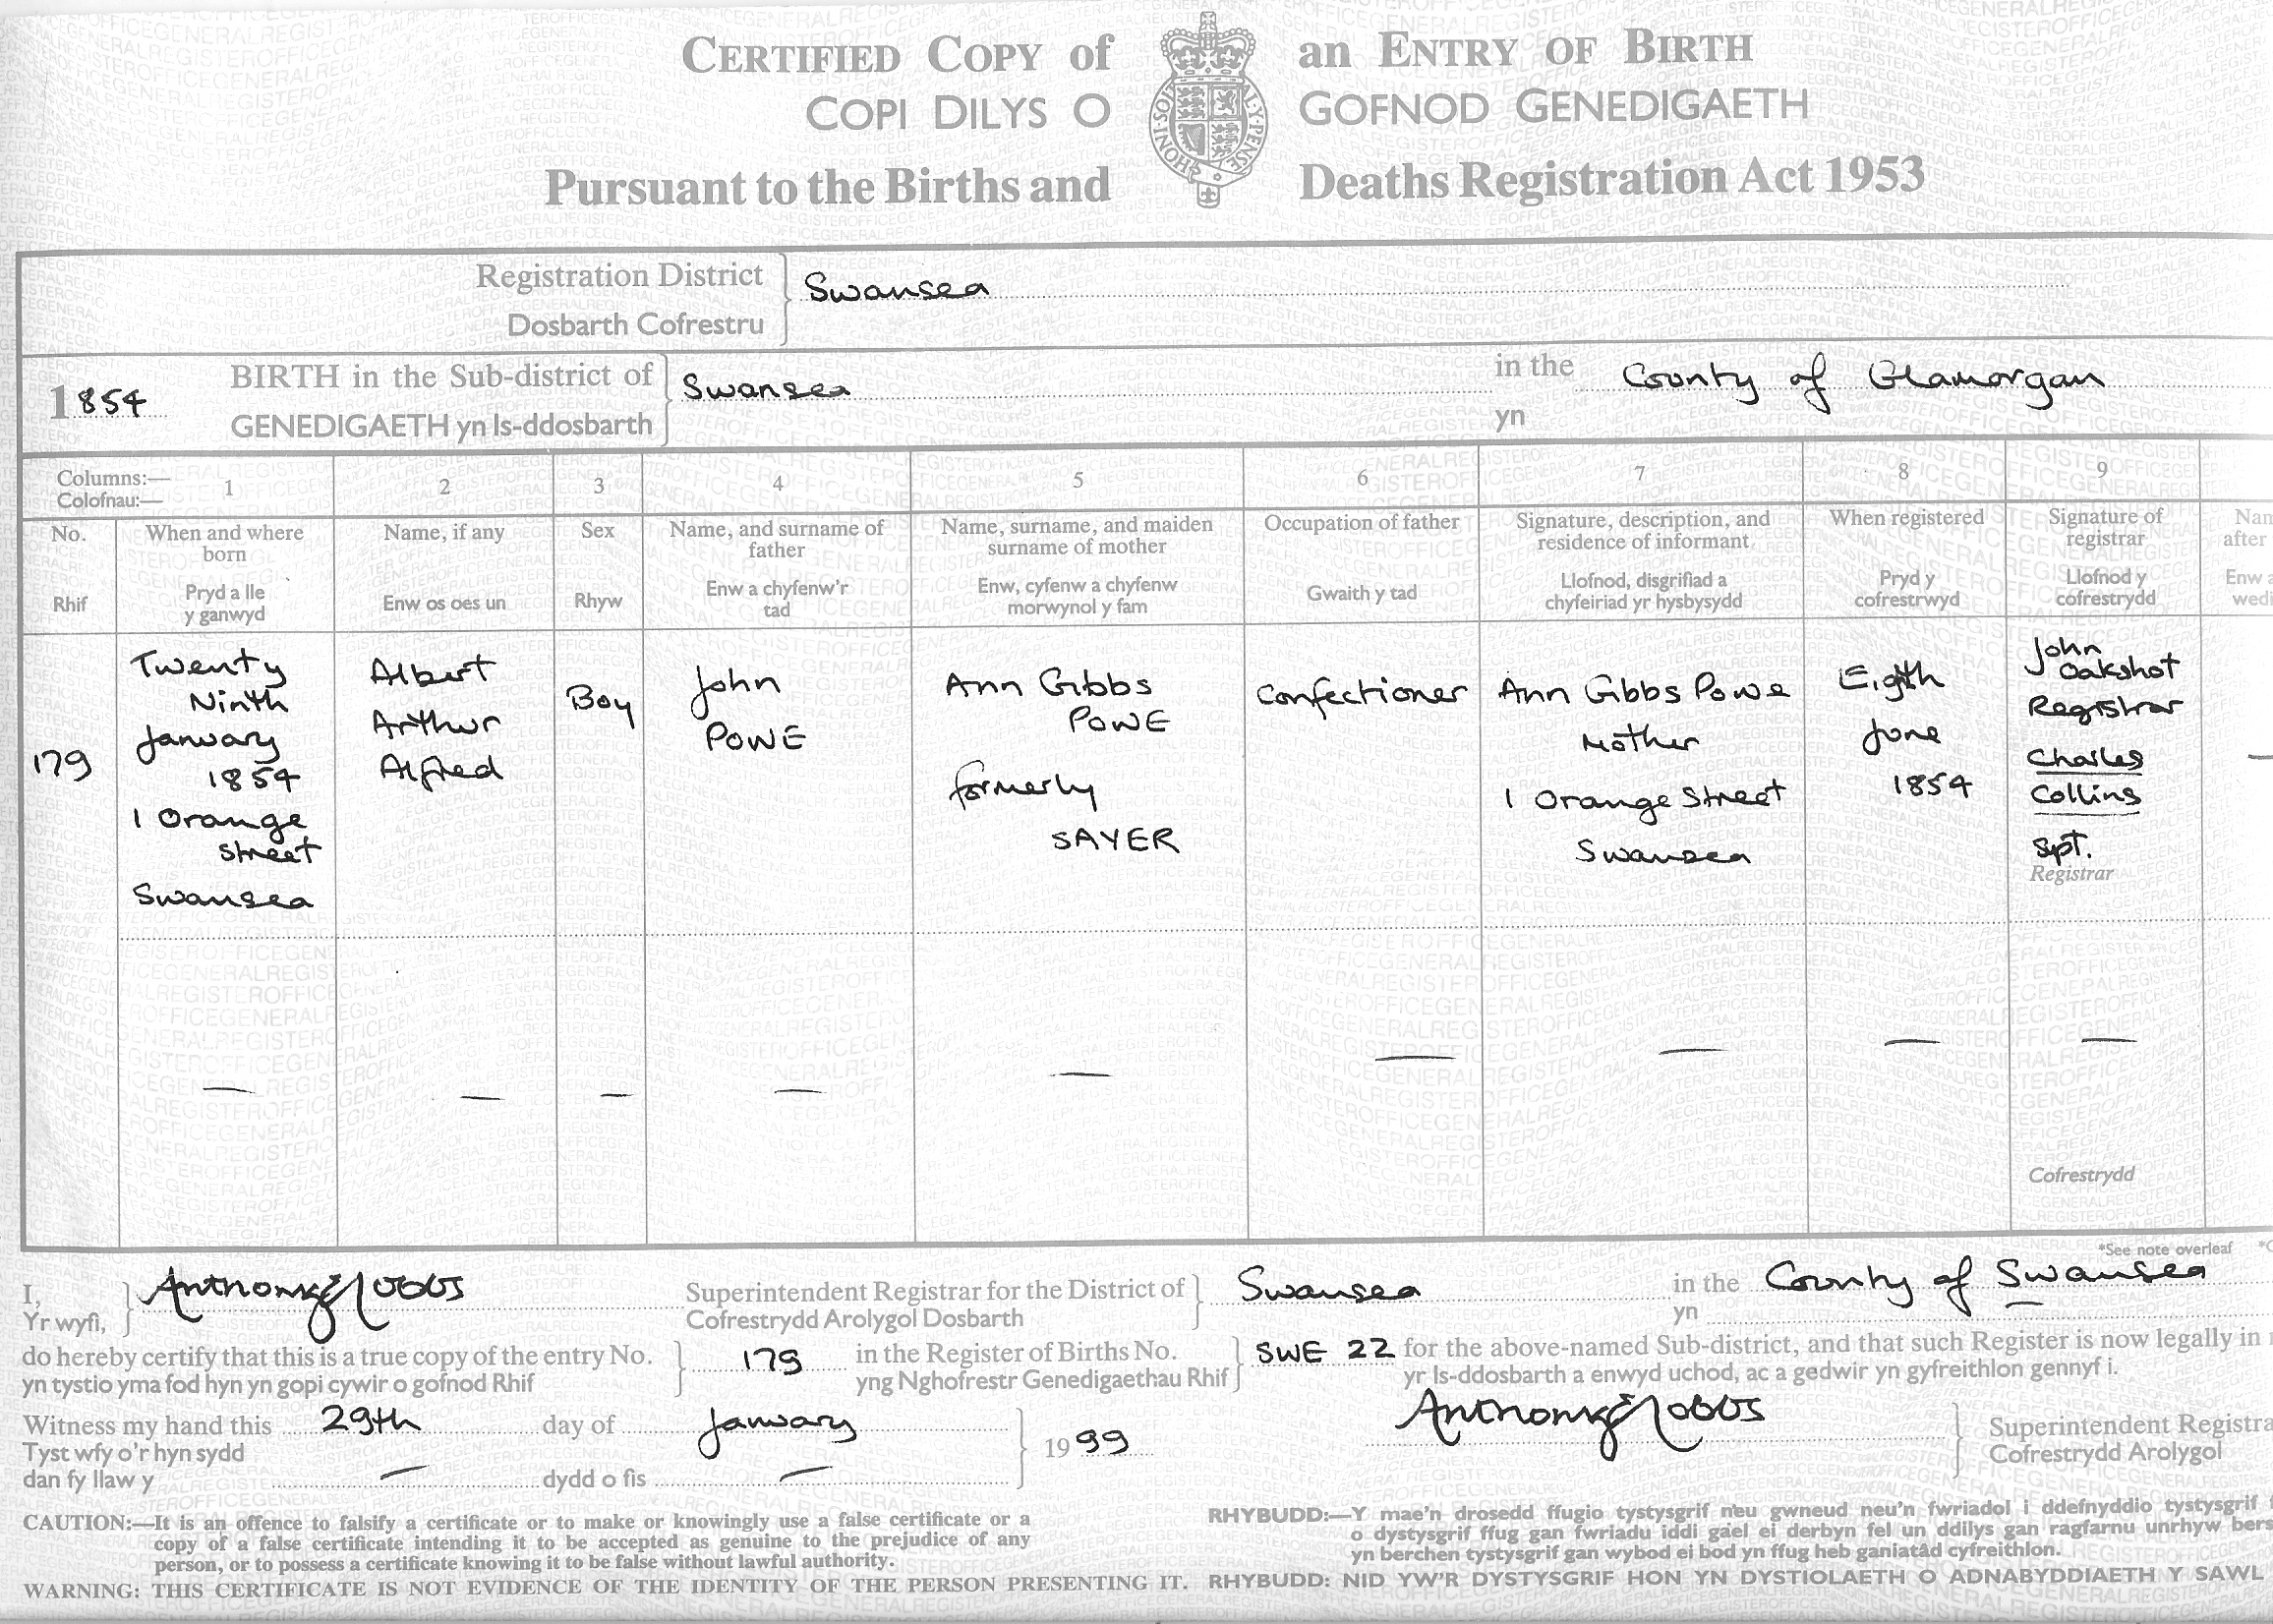 CERTIFIED COPY of an ENTRY OF BIRTH
COPI DILYS O GOFNOD GENEDIGAETH
Pursuant to the Births and Deaths Registration Act 1953
HONI·SOI
Y·PENSE
Registration District
Dosbarth Cofrestru
Swansea
1854
BIRTH in the Sub-district of
GENEDIGAETH yn Is-ddosbarth
Swansea
in the
yn
County of Glamorgan
Columns:—
Colofnau:—
1 2 3 4 5 6 7 8 9
No.
Rhif
When and where
born
Pryd a lle
y ganwyd
Name, if any
Enw os oes un
Sex
Rhyw
Name, and surname of
father
Enw a chyfenw'r
tad
Name, surname, and maiden
surname of mother
Enw, cyfenw a chyfenw
morwynol y fam
Occupation of father
Gwaith y tad
Signature, description, and
residence of informant
Llofnod, disgrifiad a
chyfeiriad yr hysbysydd
When registered
Pryd y
cofrestrwyd
Signature of
registrar
Llofnod y
cofrestrydd
after
Enw
179
Twenty
Ninth
January
1854
1 Orange
Street
Swansea
Albert
Arthur
Alfred
Boy
John
POWE
Ann Gibbs
POWE
formerly
SAYER
Confectioner
Ann Gibbs Powe
Mother
1 Orange Street
Swansea
Eigth
June
1854
John
Oakshot
Registrar
Charles
Collins
Spt.
Registrar
Cofrestrydd
*See note overleaf
I,
Yr wyfi,
Superintendent Registrar for the District of
Cofrestrydd Arolygol Dosbarth
Swansea
in the
yn
County of Swansea
do hereby certify that this is a true copy of the entry No. 179 in the Register of Births No. SWE 22 for the above-named Sub-district, and that such Register is now legally in
yn tystio yma fod hyn yn gopi cywir o gofnod Rhif yng Nghofrestr Genedigaethau Rhif yr Is-ddosbarth a enwyd uchod, ac a gedwir yn gyfreithlon gennyf i.
Witness my hand this 29th day of January 1999
Tyst wfy o'r hyn sydd
dan fy llaw y dydd o fis
Superintendent Registra
Cofrestrydd Arolygol
CAUTION:—It is an offence to falsify a certificate or to make or knowingly use a false certificate or a
copy of a false certificate intending it to be accepted as genuine to the prejudice of any
person, or to possess a certificate knowing it to be false without lawful authority.
WARNING: THIS CERTIFICATE IS NOT EVIDENCE OF THE IDENTITY OF THE PERSON PRESENTING IT.
RHYBUDD:—Y mae'n drosedd ffugio tystysgrif neu gwneud neu'n fwriadol i ddefnyddio tystysgrif
o dystysgrif ffug gan fwriadu iddi gael ei derbyn fel un ddilys gan ragfarnu unrhyw bers
yn berchen tystysgrif gan wybod ei bod yn ffug heb ganiatâd cyfreithlon.
RHYBUDD: NID YW'R DYSTYSGRIF HON YN DYSTIOLAETH O ADNABYDDIAETH Y SAWL